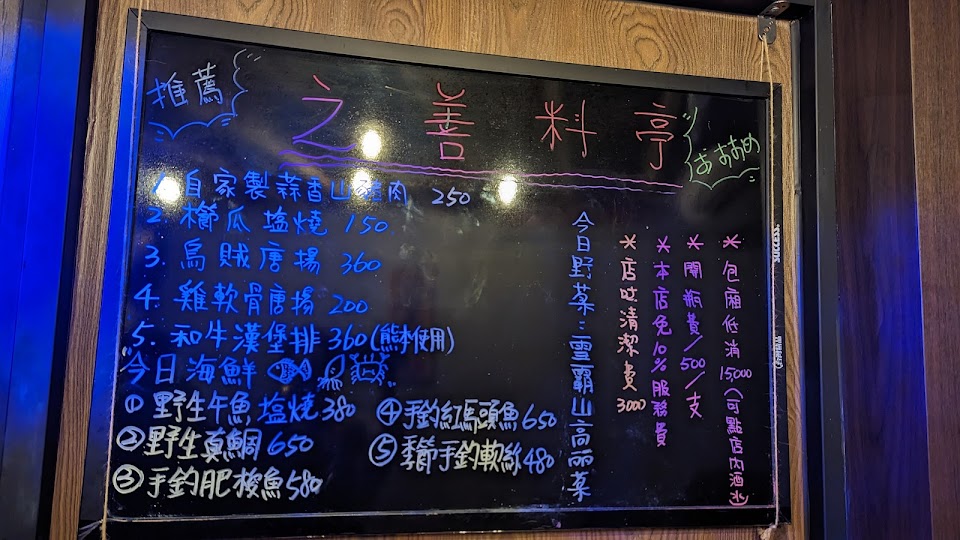 推薦
之善料亭
おすすめ
1. 自家製蒜香山豬肉 250
2. 櫛瓜塩燒 150
3. 烏賊唐揚 360
4. 雞軟骨唐揚 200
5. 和牛漢堡排 360(熊本使用)
今日海鮮
① 野生午魚塩燒 380
② 野生真鯛 650
③ 手釣肥梭魚 580
④ 手釣紅馬頭魚 650
⑤ 季節手釣軟絲 480
今日野菜：雪霸山高麗菜
*店哎清潔費 3000
*本店免10%服務費
*開瓶費/500/支
*包廂低消 15000 (可點店內酒水)
success.